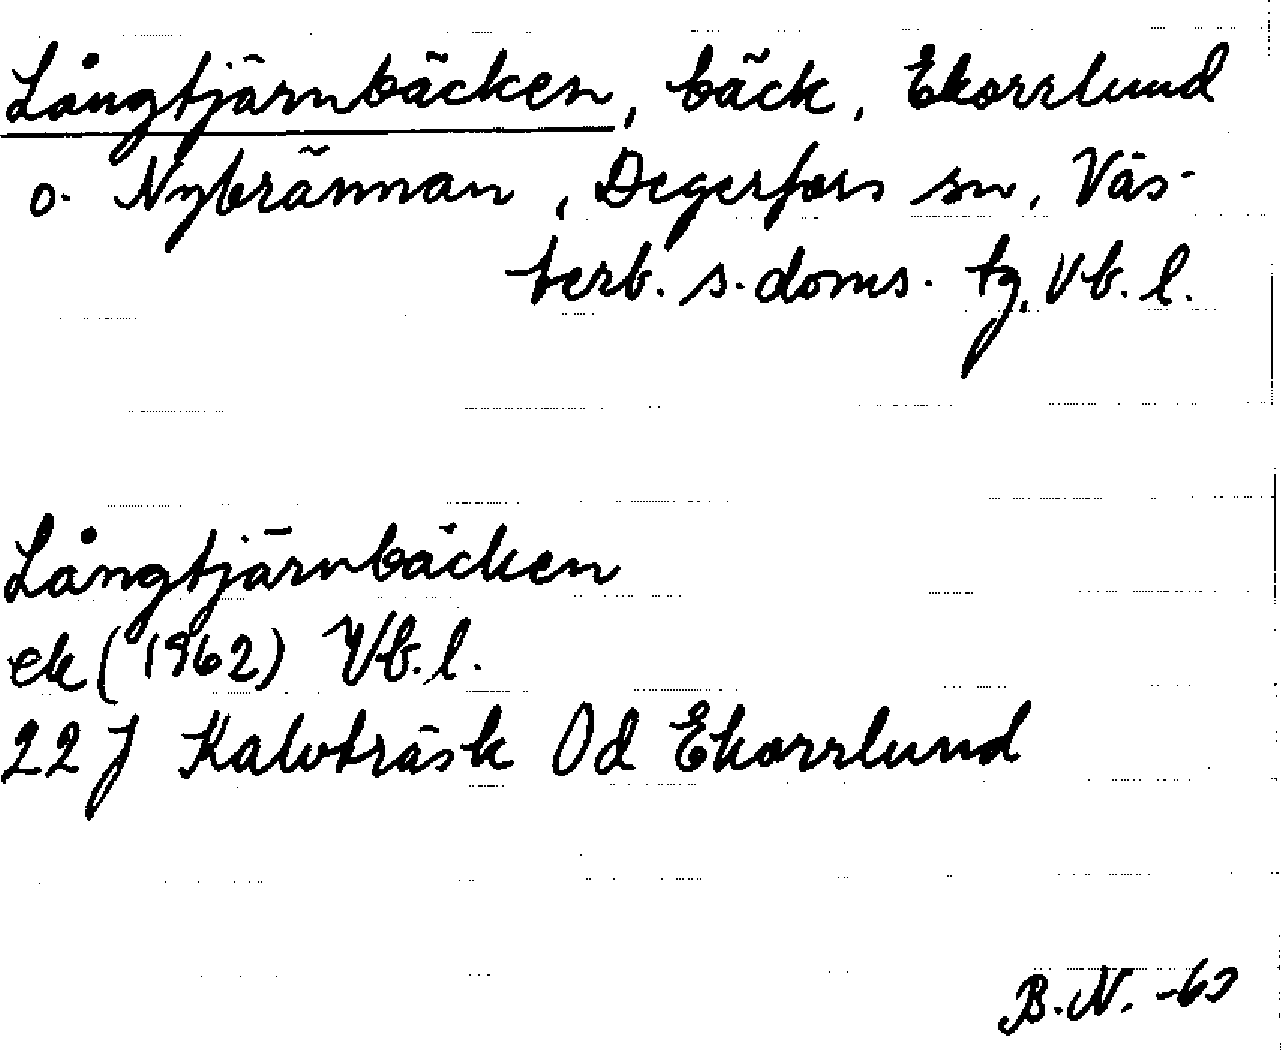 Långtjärnbäcken, bäck, Ekorrlund
o. Nybrännan, Degerfors sn, Väs-
terb. s. doms. tg, Vb. l.
Långtjärnbäcken
ek (1962) Vb. l.
22 J Kalvträsk 0d Ekorrlund
B. N. -63